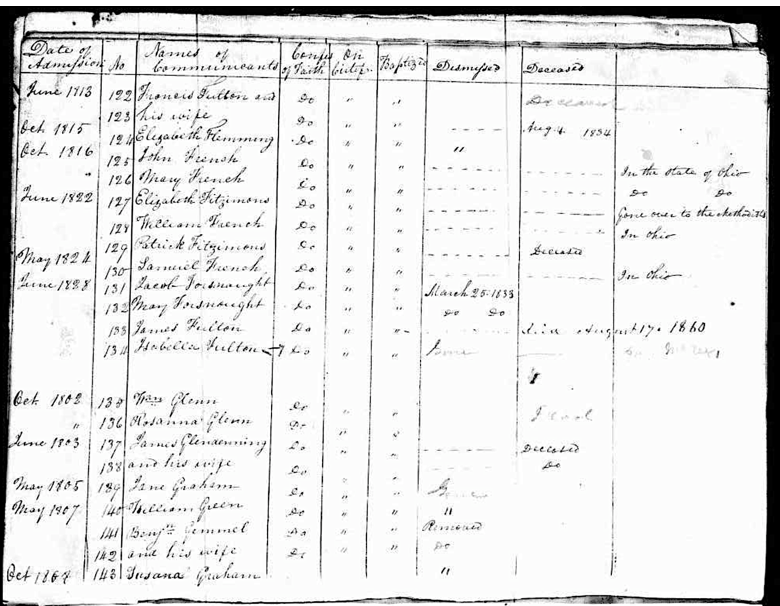 Date of Admission No Names of Communicants Confes of Faith On Certifi. Baptized Dismissed Deceased
June 1813 122 Francis Fulton and Do " " Deceased
123 his wife Do " "
Oct. 1815 124 Elizabeth Flemming Do " " Aug 4 1834
Oct. 1816 125 John French Do " " "
" 126 Mary French Do " " In the state of Ohio
June 1822 127 Elizabeth Fitzimons Do " " Do Do
128 William French Do " " Gone over to the Methodists
129 Patrick Fitzimons Do " " In Ohio
May 1824 130 Samuel French Do " " Deceased
June 1828 131 Jacob Forsnought Do " " In Ohio
132 May Forsnought Do " " March 25-1833
133 James Fulton Do " " Do Do
134 Isabella Fulton Do " " died August 17. 1860
Gone
Oct. 1802 135 Wm Glenn Do " "
" 136 Rosanna Glenn Do " "
June 1803 137 James Glendenning Do " "
138 and his wife Do " " Deceased
May 1805 139 Jane Graham Do " " Do
May 1807 140 William Green Do " " Gone
141 Benjn Gemmel Do " " "
142 and his wife Do " " Removed
Do
Oct 143 Susana Graham "